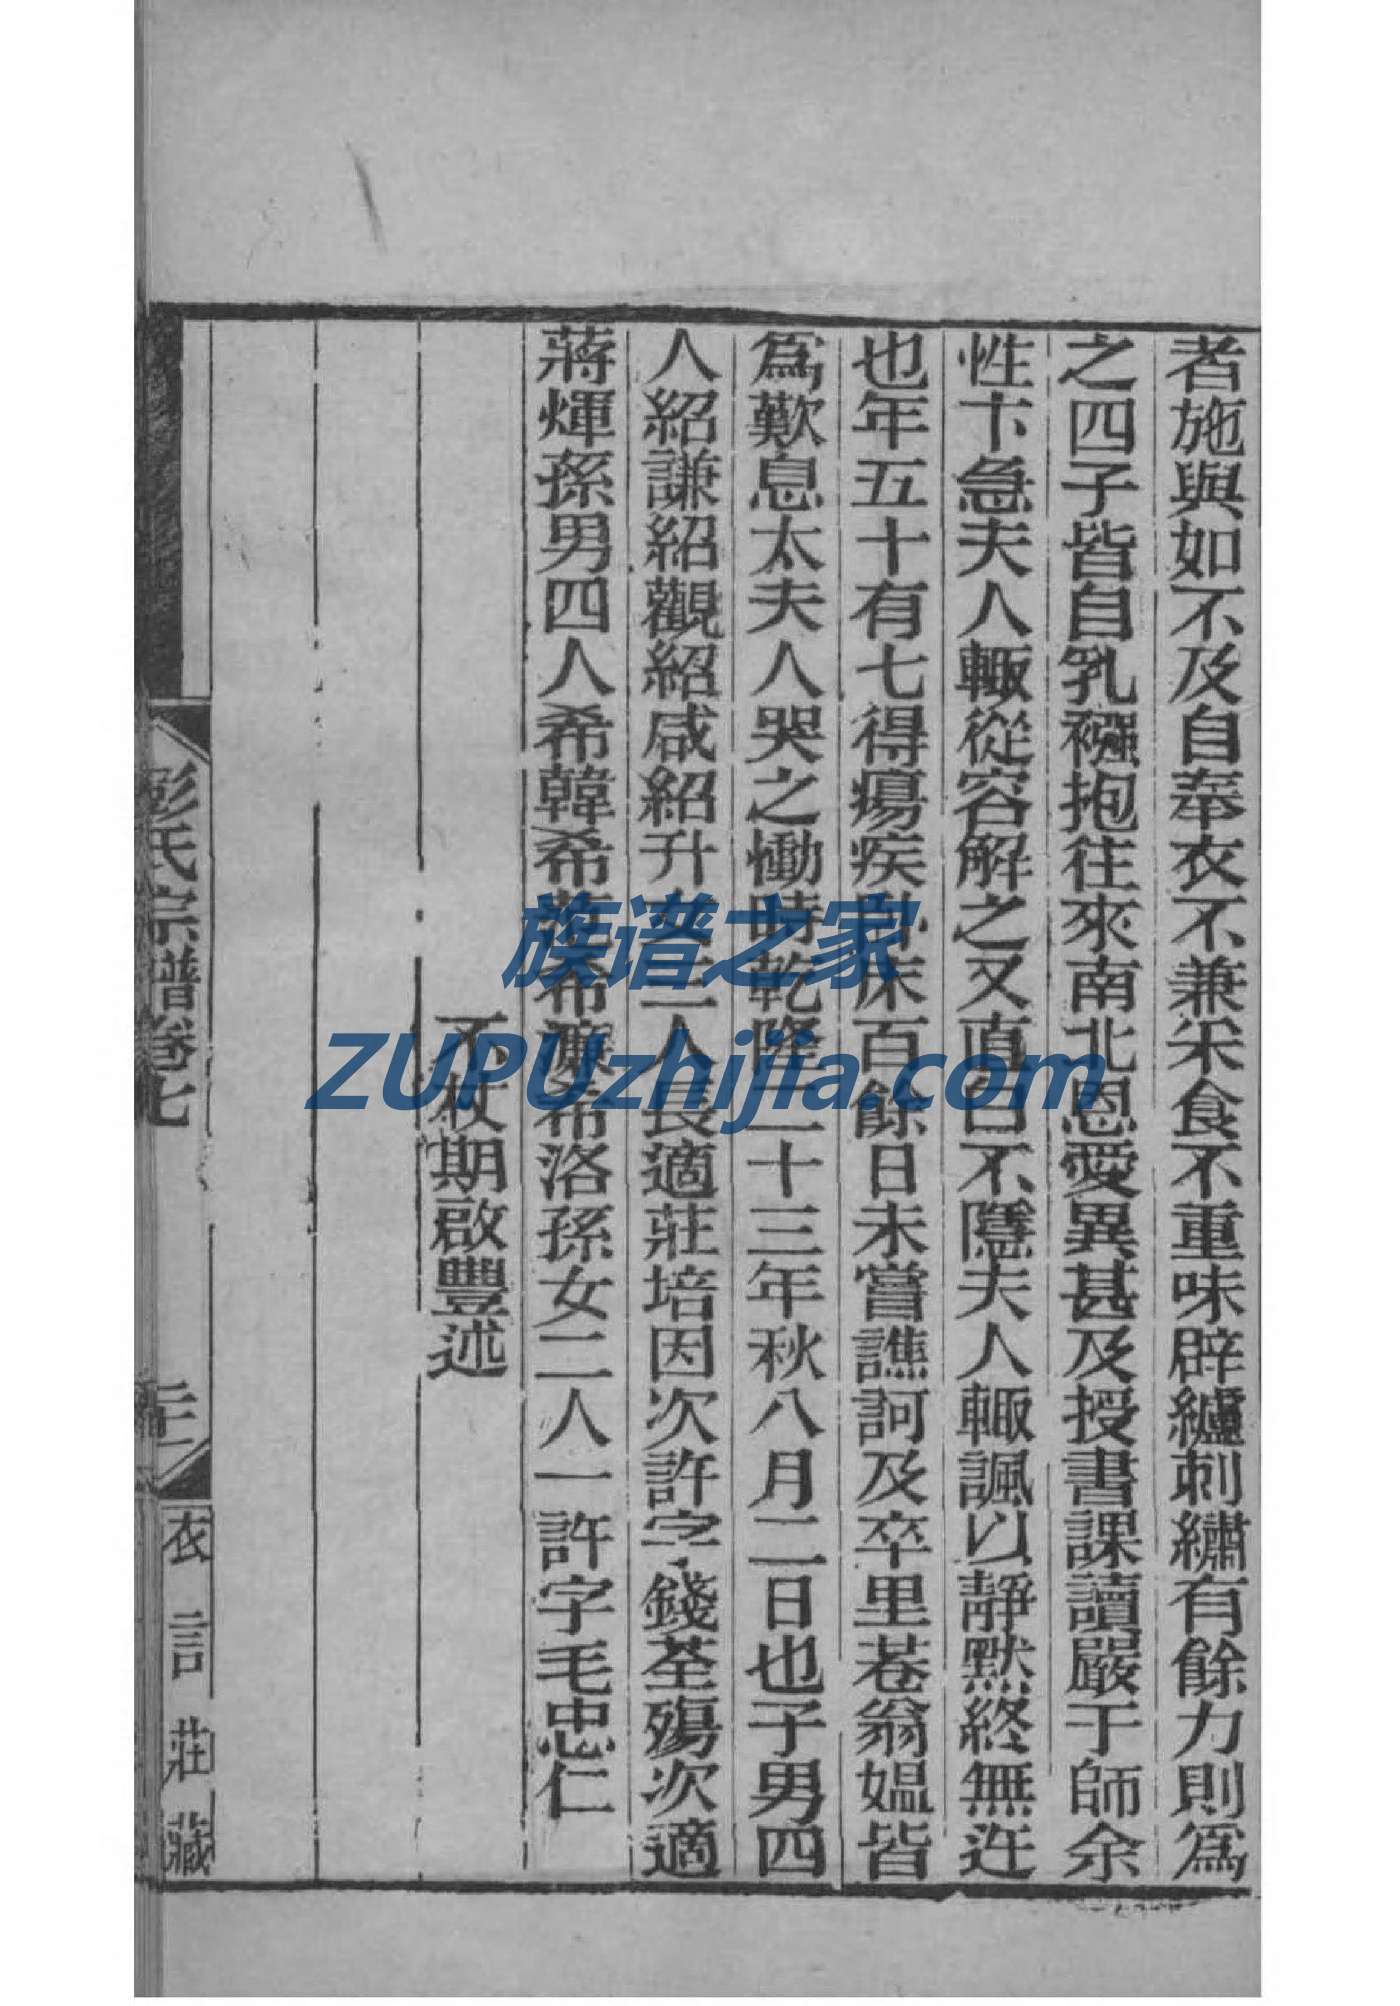 者施與如不及自奉衣不兼采食不重味辟纑刺繡有餘力則爲
之四子皆自乳襁抱往來南北恩愛異甚及授書課讀嚴于師余
性卞急夫人輒從容解之又直白不隱夫人輒諷以靜默終無迕
也年五十有七得瘍疾臥床百餘日未嘗譙訶及卒里巷翁媼皆
爲歎息太夫人哭之慟時乾隆二十三年秋八月二日也子男四
人紹謙紹觀紹咸紹升女三人長適莊培因次許字錢荃殤次適
蔣煇孫男四人希韓希范希濂希洛孫女二人一許字毛忠仁
不杖期啟豐述
彭氏宗譜卷七
衣言莊藏
族谱之家
ZUPUzhijia.com